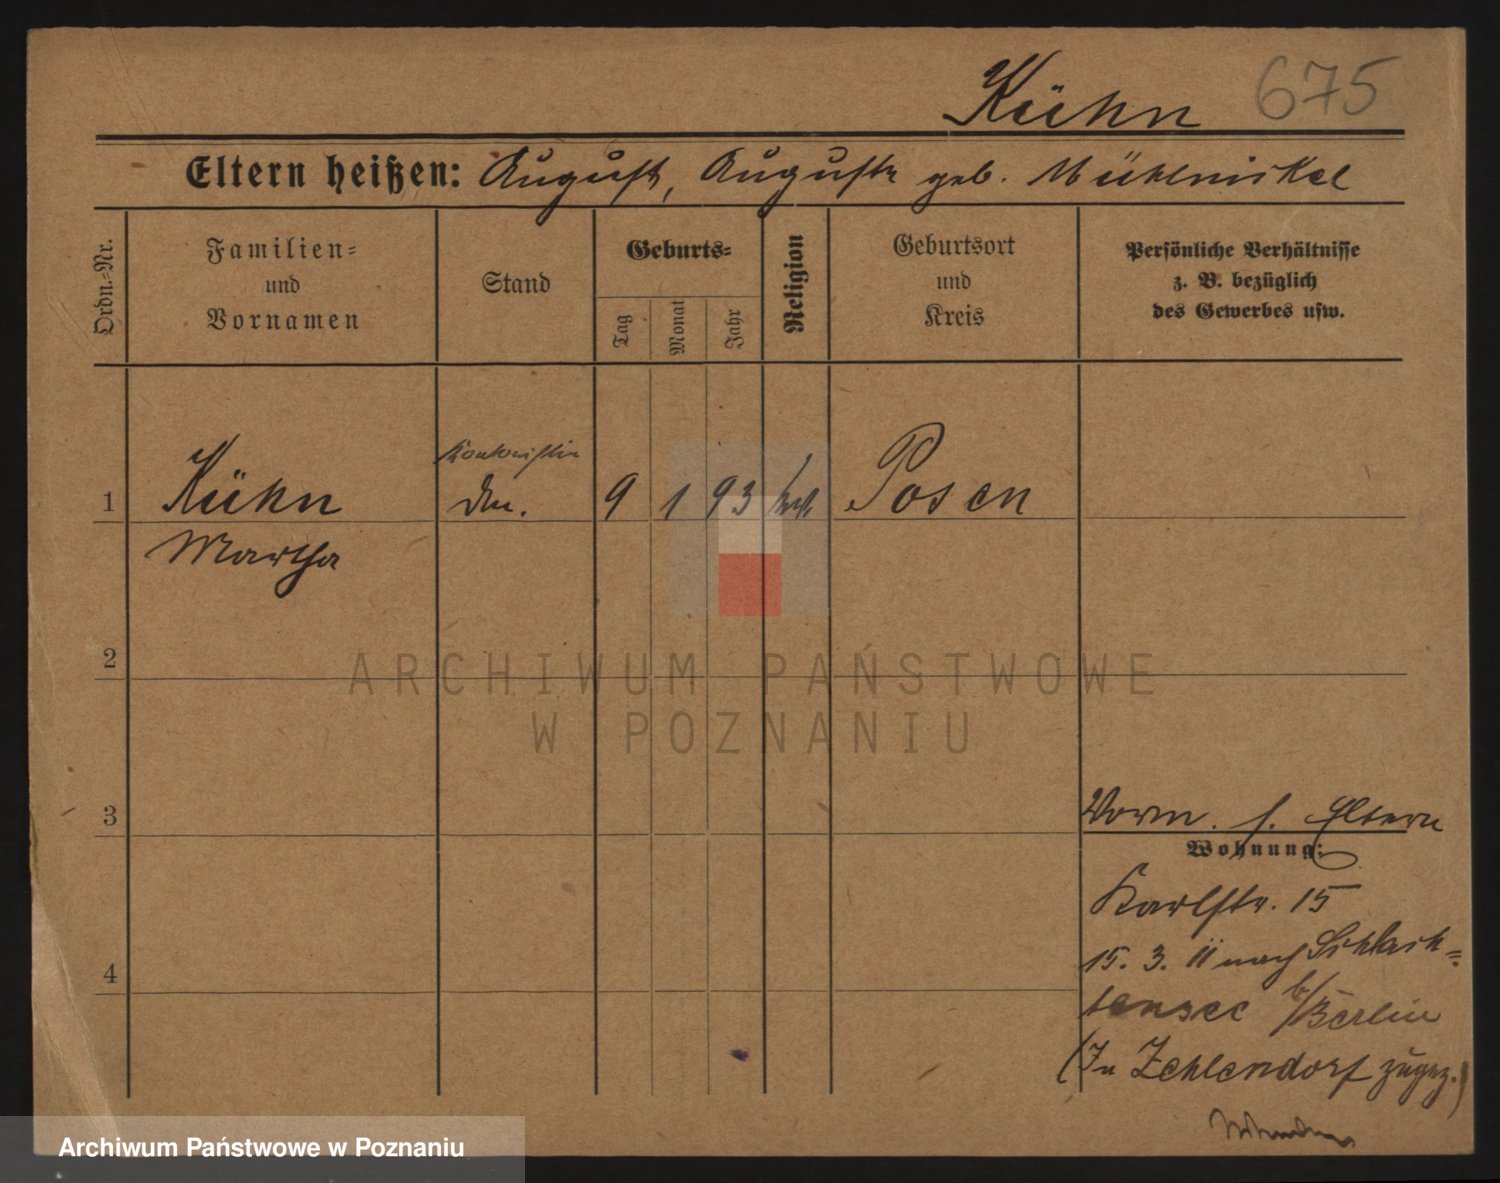 Kühn 675
Eltern heißen: August, Auguste geb. Mühlnikel
Ordn.-Nr.
Familien-
und
Vornamen
Stand
Geburts-
Tag
Monat
Jahr
Religion
Geburtsort
und
Kreis
Persönliche Verhältnisse
z. B. bezüglich
des Gewerbes usw.
Kontoristin
1 Kühn 9 1 93 Posen
Martha
2
3
4
Vorm. s. Eltern
Wohnung:
Karlstr. 15
15. 3. 11 nach Schlach=
tensee b/Berlin
(In Zehlendorf zugez.)
ARCHIWUM PAŃSTWOWE
W POZNANIU
Archiwum Państwowe w Poznaniu